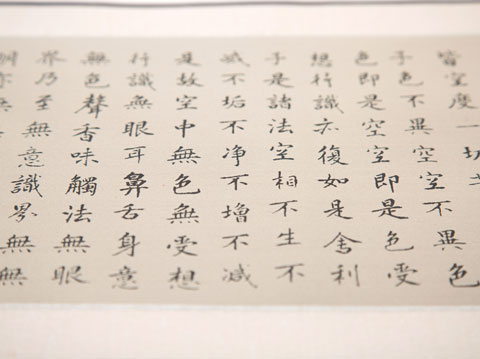 皆空度一切
子色不異空空不異色
色即是空空即是色受
想行識亦復如是舍利
子是諸法空相不生不
滅不垢不净不增不減
是故空中無色無受想
行識無眼耳鼻舌身意
無色聲香味觸法無眼
界乃至無意識界無無
亦無